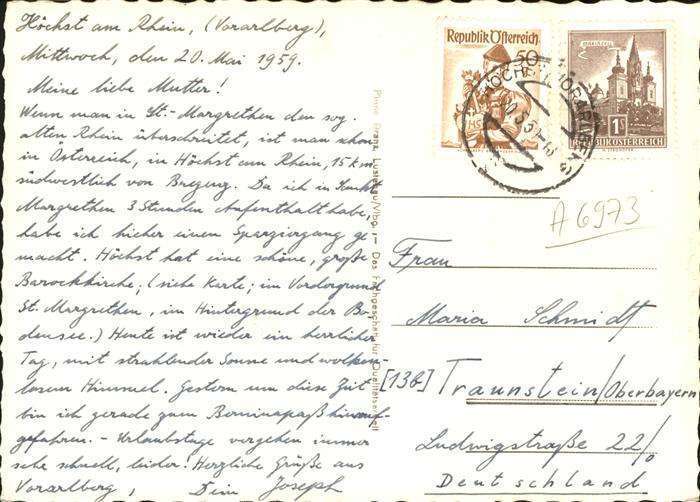 Höchst am Rhein, (Vorarlberg),
Mittwoch, den 20. Mai 1959.
Meine liebe Mutter!
Wenn man in St.-Margrethen den sog.
alten Rhein überschreitet, ist man schon
in Österreich, in Höchst am Rhein, 15 km
südwestlich von Bregenz. Da ich in Sankt
Margrethen 3 Stunden Aufenthalt habe,
habe ich hieher einen Spaziergang ge-
macht. Höchst hat eine schöne, große
Barockkirche; (siehe Karte; im Vordergrund
St. Margrethen, im Hintergrund der Bo-
densee.) Heute ist wieder ein herrlicher
Tag, mit strahlender Sonne und wolken-
losem Himmel. Gestern um diese Zeit
bin ich gerade zum Berninapaß hinauf-
gefahren. - Urlaubstage vergehen immer
sehr schnell, leider! Herzliche Grüße aus
Vorarlberg, Dein Joseph
Lustenau/Vlbg. — Das Fachgeschäft für
Republik Österreich
50
1S
REPUBLIK ÖSTERREICH
HÖCHST VORARLBERG
20.5.59
A 6973
Frau
Maria Schmidt
[13b] Traunstein/Oberbayern
Ludwigstraße 22/0
Deutschland